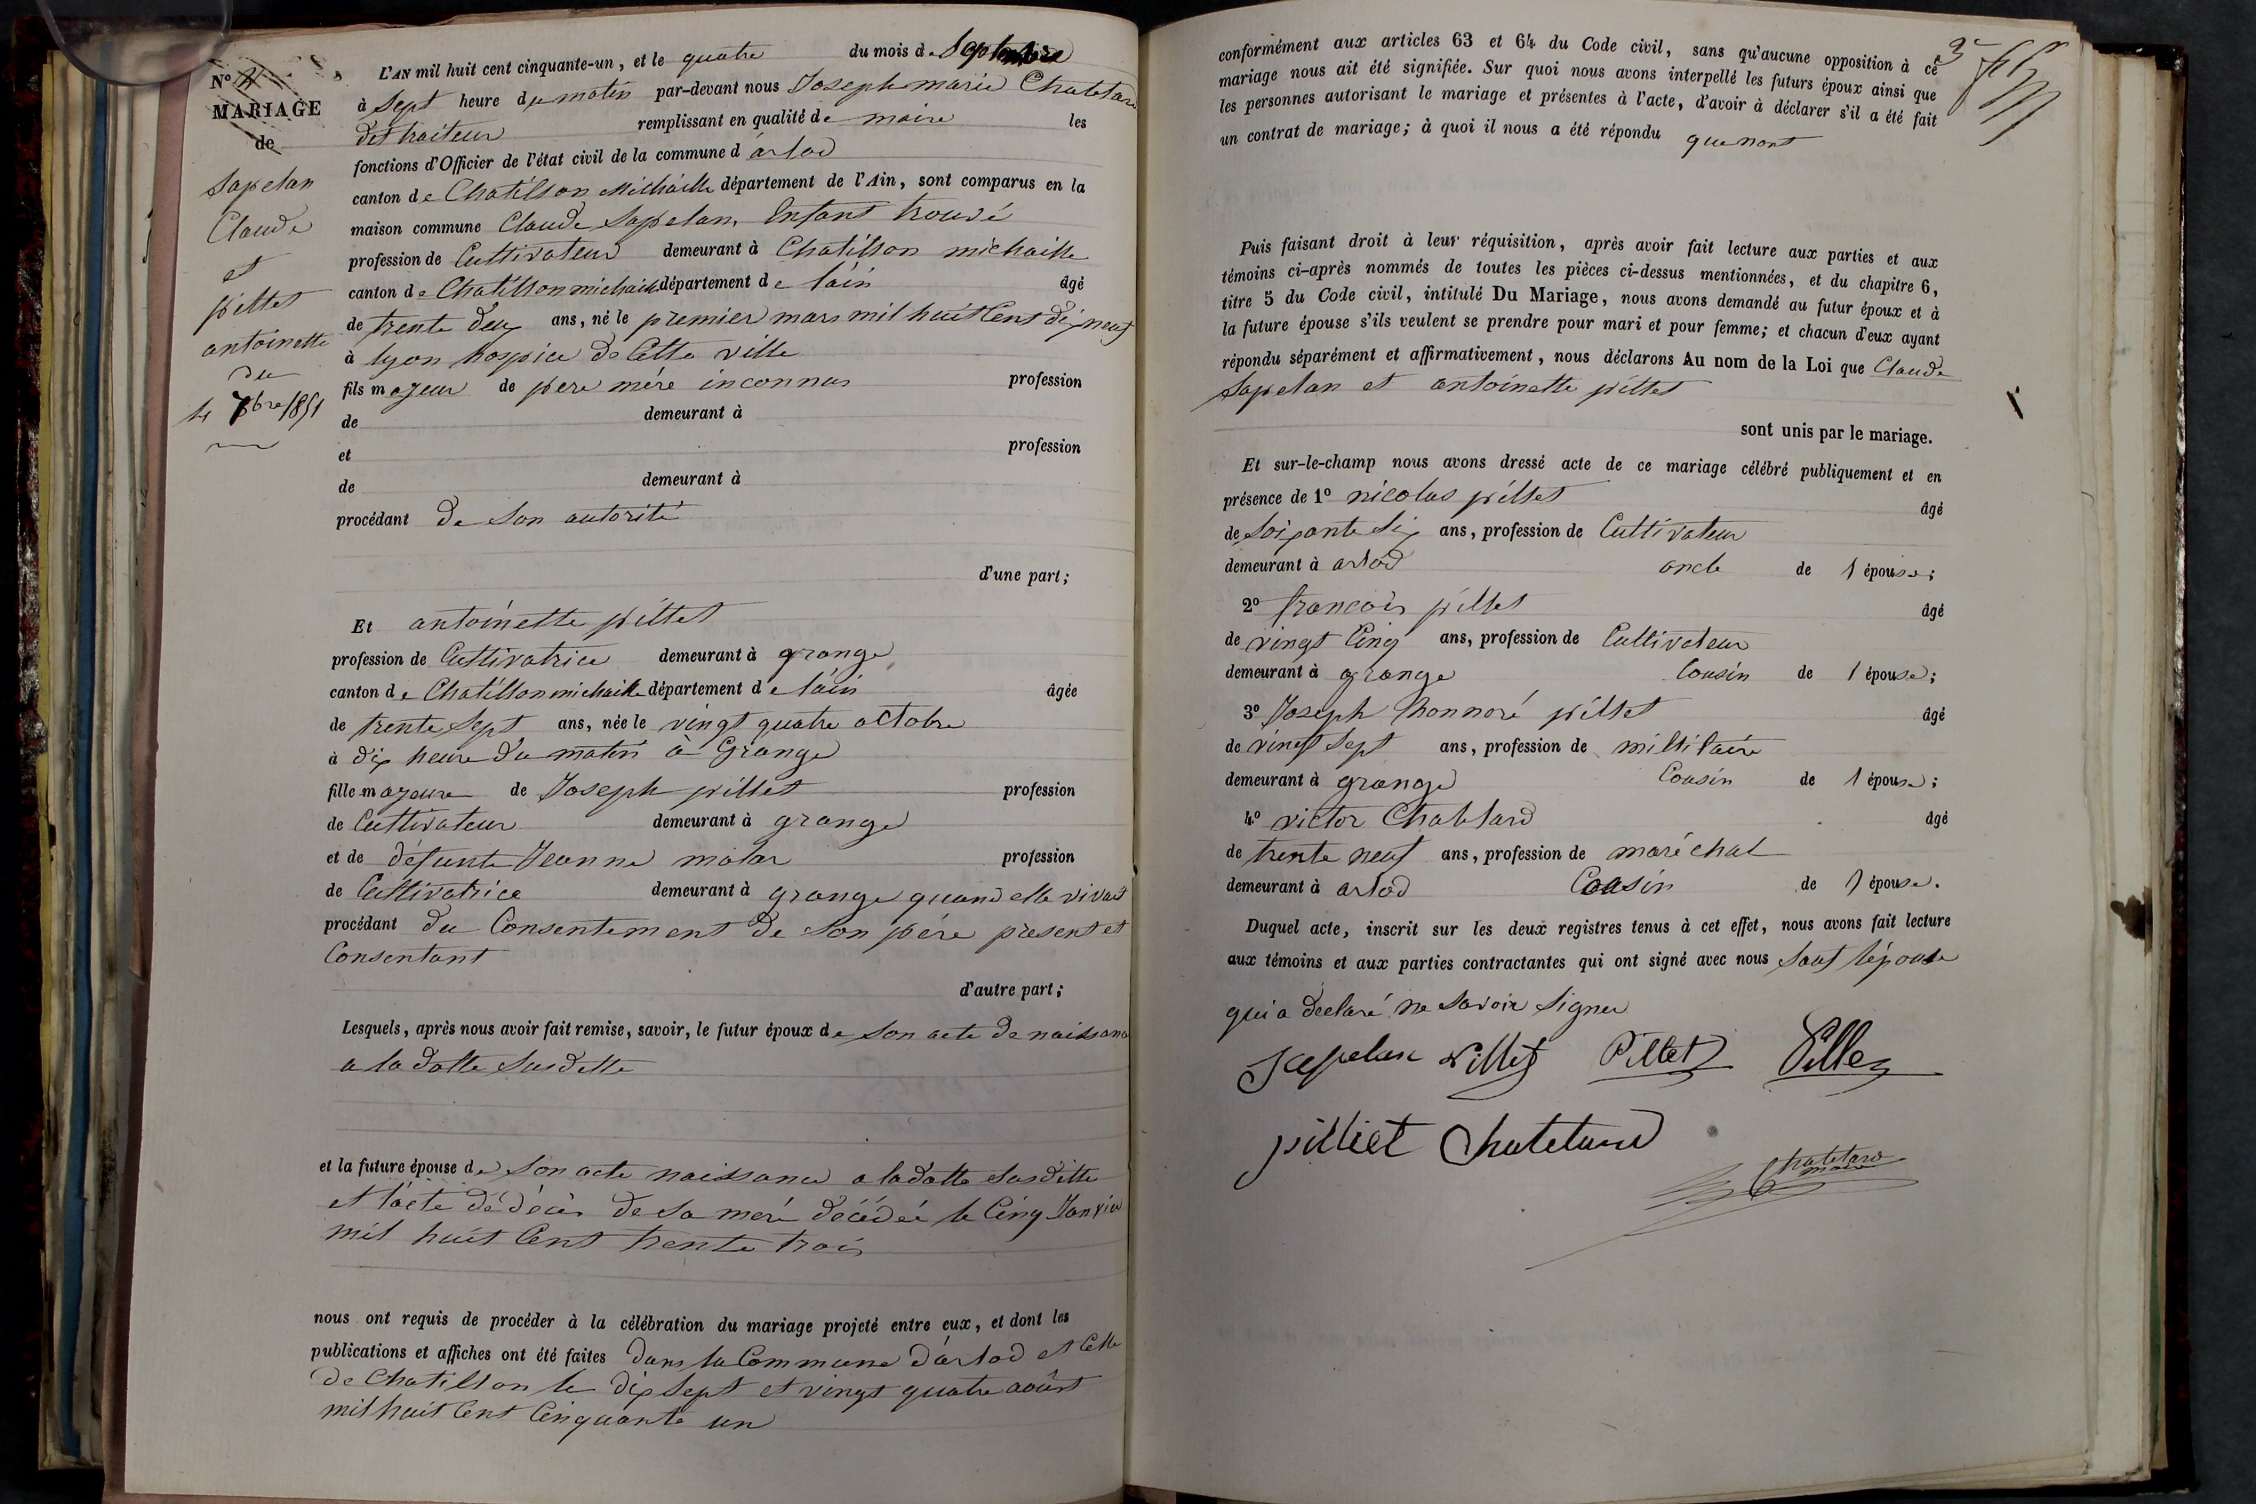 N°
MARIAGE
de
Sapelan
Claude
et
pittet
antoinette
du
4 7bre 1851
L'AN mil huit cent cinquante-un, et le quatre du mois de Septembre
à Sept heure du matin par-devant nous Joseph marie Chatelard
remplissant en qualité de maire les
fonctions d'Officier de l'état civil de la commune d'arlod
canton de Chatillon Michaille département de l'Ain, sont comparus en la
maison commune Claude Sapelan, Enfant trouvé
profession de Cultivateur demeurant à Chatillon michaille
canton de Chatillon michaille département de l'ain âgé
de trente deux ans, né le premier mars mil huit Cent dix neuf
à lyon hospice de Cette ville
fils majeur de pere mére inconnus profession
de demeurant à
et profession
de demeurant à
procédant de Son autorité
d'une part;
Et antoinette pittet
profession de Cultivatrice demeurant à grange
canton de Chatillon michaille département de l'ain âgée
de trente Sept ans, née le vingt quatre octobre
à dix heure du matin à Grange
fille majeure de Joseph pillet profession
de Cultivateur demeurant à grange
et de défunte Jeanne profession
de Cultivatrice demeurant à grange quand elle vivait
procédant du Consentement de Son pére présent et
Consentant
d'autre part;
Lesquels, après nous avoir fait remise, savoir, le futur époux de Son acte de naissance
a la datte Susditte
et la future épouse de Son acte naissance a la datte Susditte
et l'acte dé décès de Sa meré décédeé le Cinq Janvier
mil huit Cent trente trois
nous ont requis de procéder à la célébration du mariage projeté entre eux, et dont les
publications et affiches ont été faites dans la Commune d'arlod et Celle
de Chatillon le dix Sept et vingt quatre août
mil huit Cent Cinquante un
conformément aux articles 63 et 64 du Code civil, sans qu'aucune opposition à ce
mariage nous ait été signifiée. Sur quoi nous avons interpellé les futurs époux ainsi que
les personnes autorisant le mariage et présentes à l'acte, d'avoir à déclarer s'il a été fait
un contrat de mariage; à quoi il nous a été répondu que nont
Puis faisant droit à leur réquisition, après avoir fait lecture aux parties et aux
témoins ci-après nommés de toutes les pièces ci-dessus mentionnées, et du chapitre 6,
titre 5 du Code civil, intitulé Du Mariage, nous avons demandé au futur époux et à
la future épouse s'ils veulent se prendre pour mari et pour femme; et chacun d'eux ayant
répondu séparément et affirmativement, nous déclarons Au nom de la Loi que Claude
Sapelan et antoinette pittet
sont unis par le mariage.
Et sur-le-champ nous avons dressé acte de ce mariage célébré publiquement et en
présence de 1° nicolas pittet âgé
de Soixante Six ans, profession de Cultivateur
demeurant à arlod oncle de l épouse;
2° francois pittet âgé
de vingt Cinq ans, profession de Cultivateur
demeurant à grange Cousin de l épouse;
3° Joseph honnoré pittet âgé
de vingt Sept ans, profession de millitaire
demeurant à grange Cousin de l épouse;
4° victor Chatelard âgé
de trente neuf ans, profession de maréchal
demeurant à arlod Cousin de l épouse.
Duquel acte, inscrit sur les deux registres tenus à cet effet, nous avons fait lecture
aux témoins et aux parties contractantes qui ont signé avec nous Sauf l'épouse
qui a declaré ne Savoir Signer
Sapelan Pittet
pilliet Chatelard
Chatelard
maire